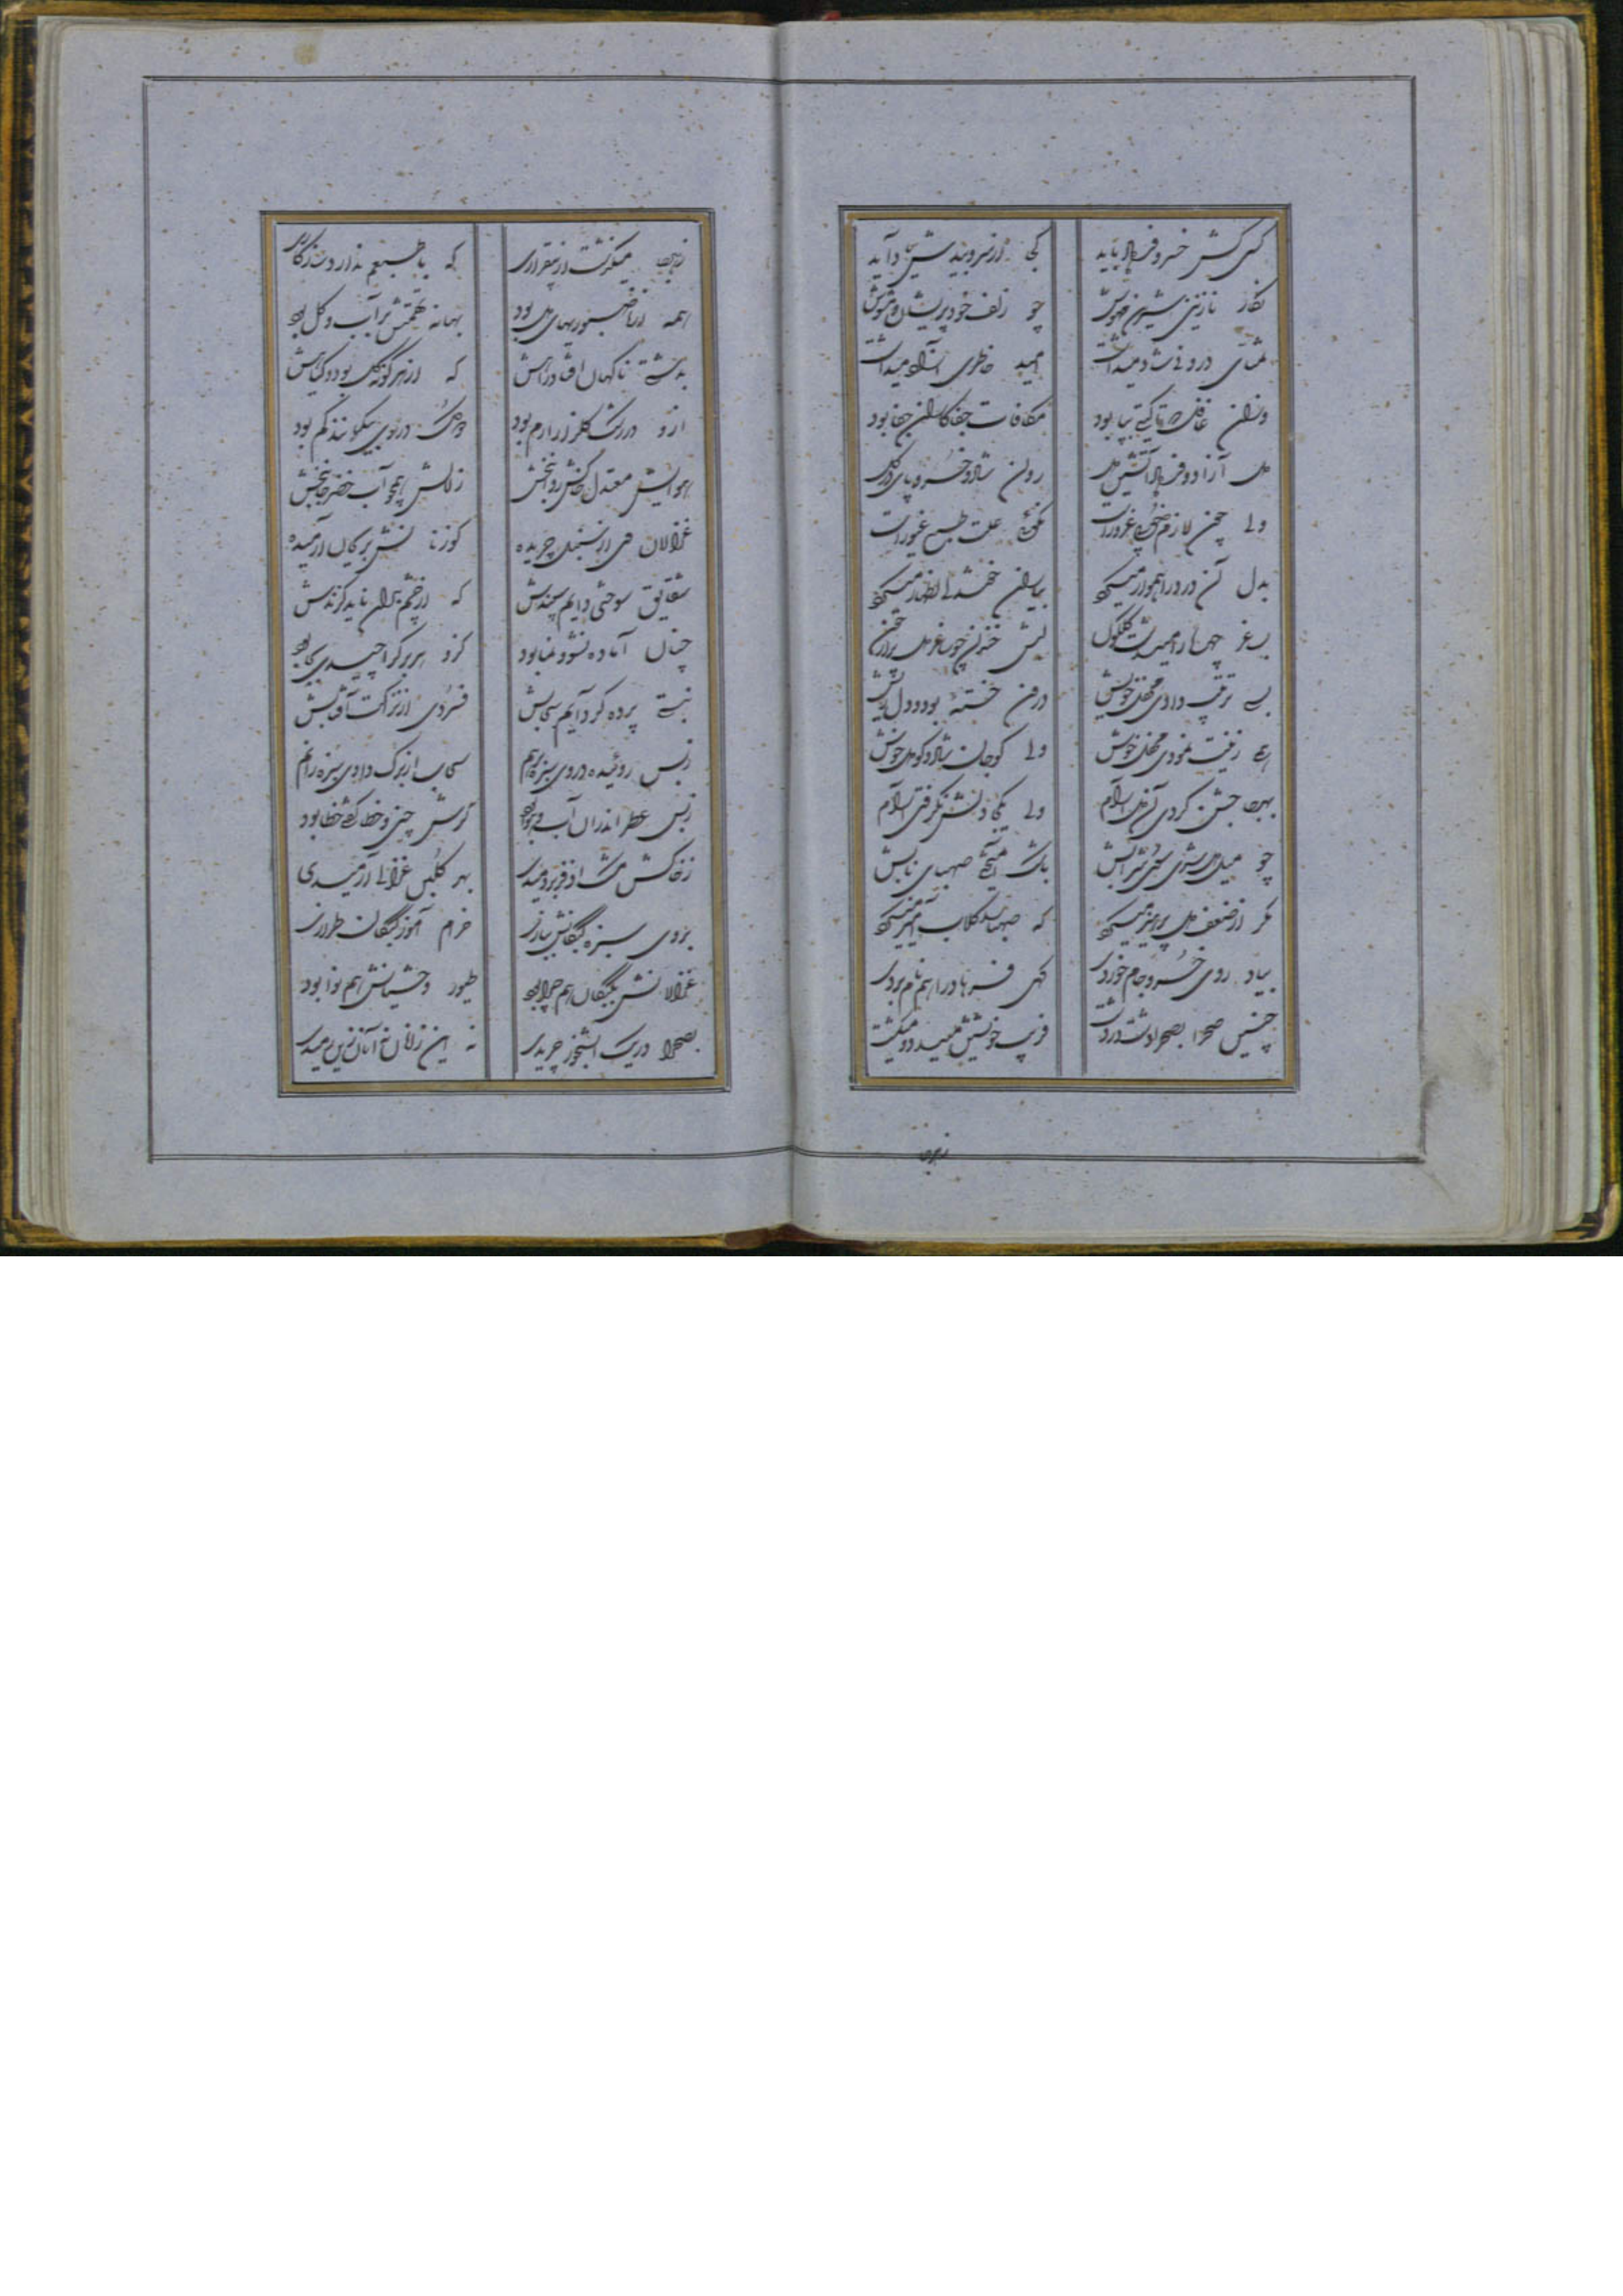 کسی کش خسرو و فرهاد باید کجا از سرو و بیدش یاد آید
نگار نازنین شیرین مهوش چو زلف خود پریشان و مشوش
تمنای درونی شاد میداشت امید خاطری آزاد میداشت
وزان غافل که تا گیتی بپا بود مکافات جفاکاران جفا بود
دل آزاد و فرهاد آتشین دل روان شاد و خسرو پای در گل
ولی چون لازم خوبی غرور است نکوئی علت طبع غیور است
بدل آن درد را هموار میکرد بیاران خوشدلی اظهار میکرد
بساغر چهره را میداشت گلگون لبش خندان چو ساغر دل پر از خون
بسی ترتیب دادی محفل خویش درون خسته بود و دل ریش
زینت نمودی محفل خوش ولی کو جان شاد و کو دل خوش
بهر جا جشن کردی آن دلارام ولی یکجا دلش نگرفتی آرام
چو میل دل شرابش باشک آمیختی صهبای نابش
مگر از ضعف دل پرهیز میکرد که صهبا را گلاب آمیز میکرد
بیاد روی خسرو جام خوردی گهی فرهاد را هم نام بردی
چنین صحرا بصحرا دشت در دشت فریب خویشتن میداد و میگشت
بهر جا
بهر جا میگذشت از بیقراری که با طبعم ندارد سازگاری
همه از ناصبوریهای دل بود بهانه تهمتش بر آب و گل بود
بدشتی ناگهان افتاد راهش که از هر گونه گل بود و گیاهش
ازو در رشک گلزار ارم بود در وی کم بود
هوایش معتدل خاکش روانبخش زلالش همچو آب خضر جانبخش
غزالان وی از سنبل چریده گوزنانش بریحان آرمیده
شقایق سوختی دایم سپندش که از چشم بدان ناید گزندش
چنان آماده نشو و نما بود کزو هر برگ را چیدی بجا بود
نبستی پرده گر دایم سحابش فسردی از نزاکت آفتابش
زبس روئیده در وی سبزه با هم سحاب از برگ دادی سبزه را نم
زبس عطر اندران آب و هوا بود گرش چین و خطا گفتی خطا بود
زخاکش مشک اذفر بردمیدی بهر گلبن غزالی آرمیدی
بروی سبزه کبکانش ببازی خرام آموز کبکان طرازی
غزالانش بکبکان هم چرا بود طیور و وحشیانش هم نوا بود
بصحرا در یک آبشخور چریدی نه این زان نه آن زین رمیدی